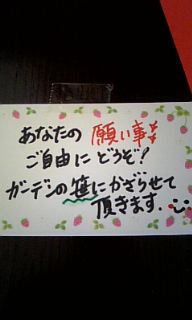 あなたの 願い事を
ご自由に どうぞ!
ガーデンの 笹にかざらせて
頂きます.